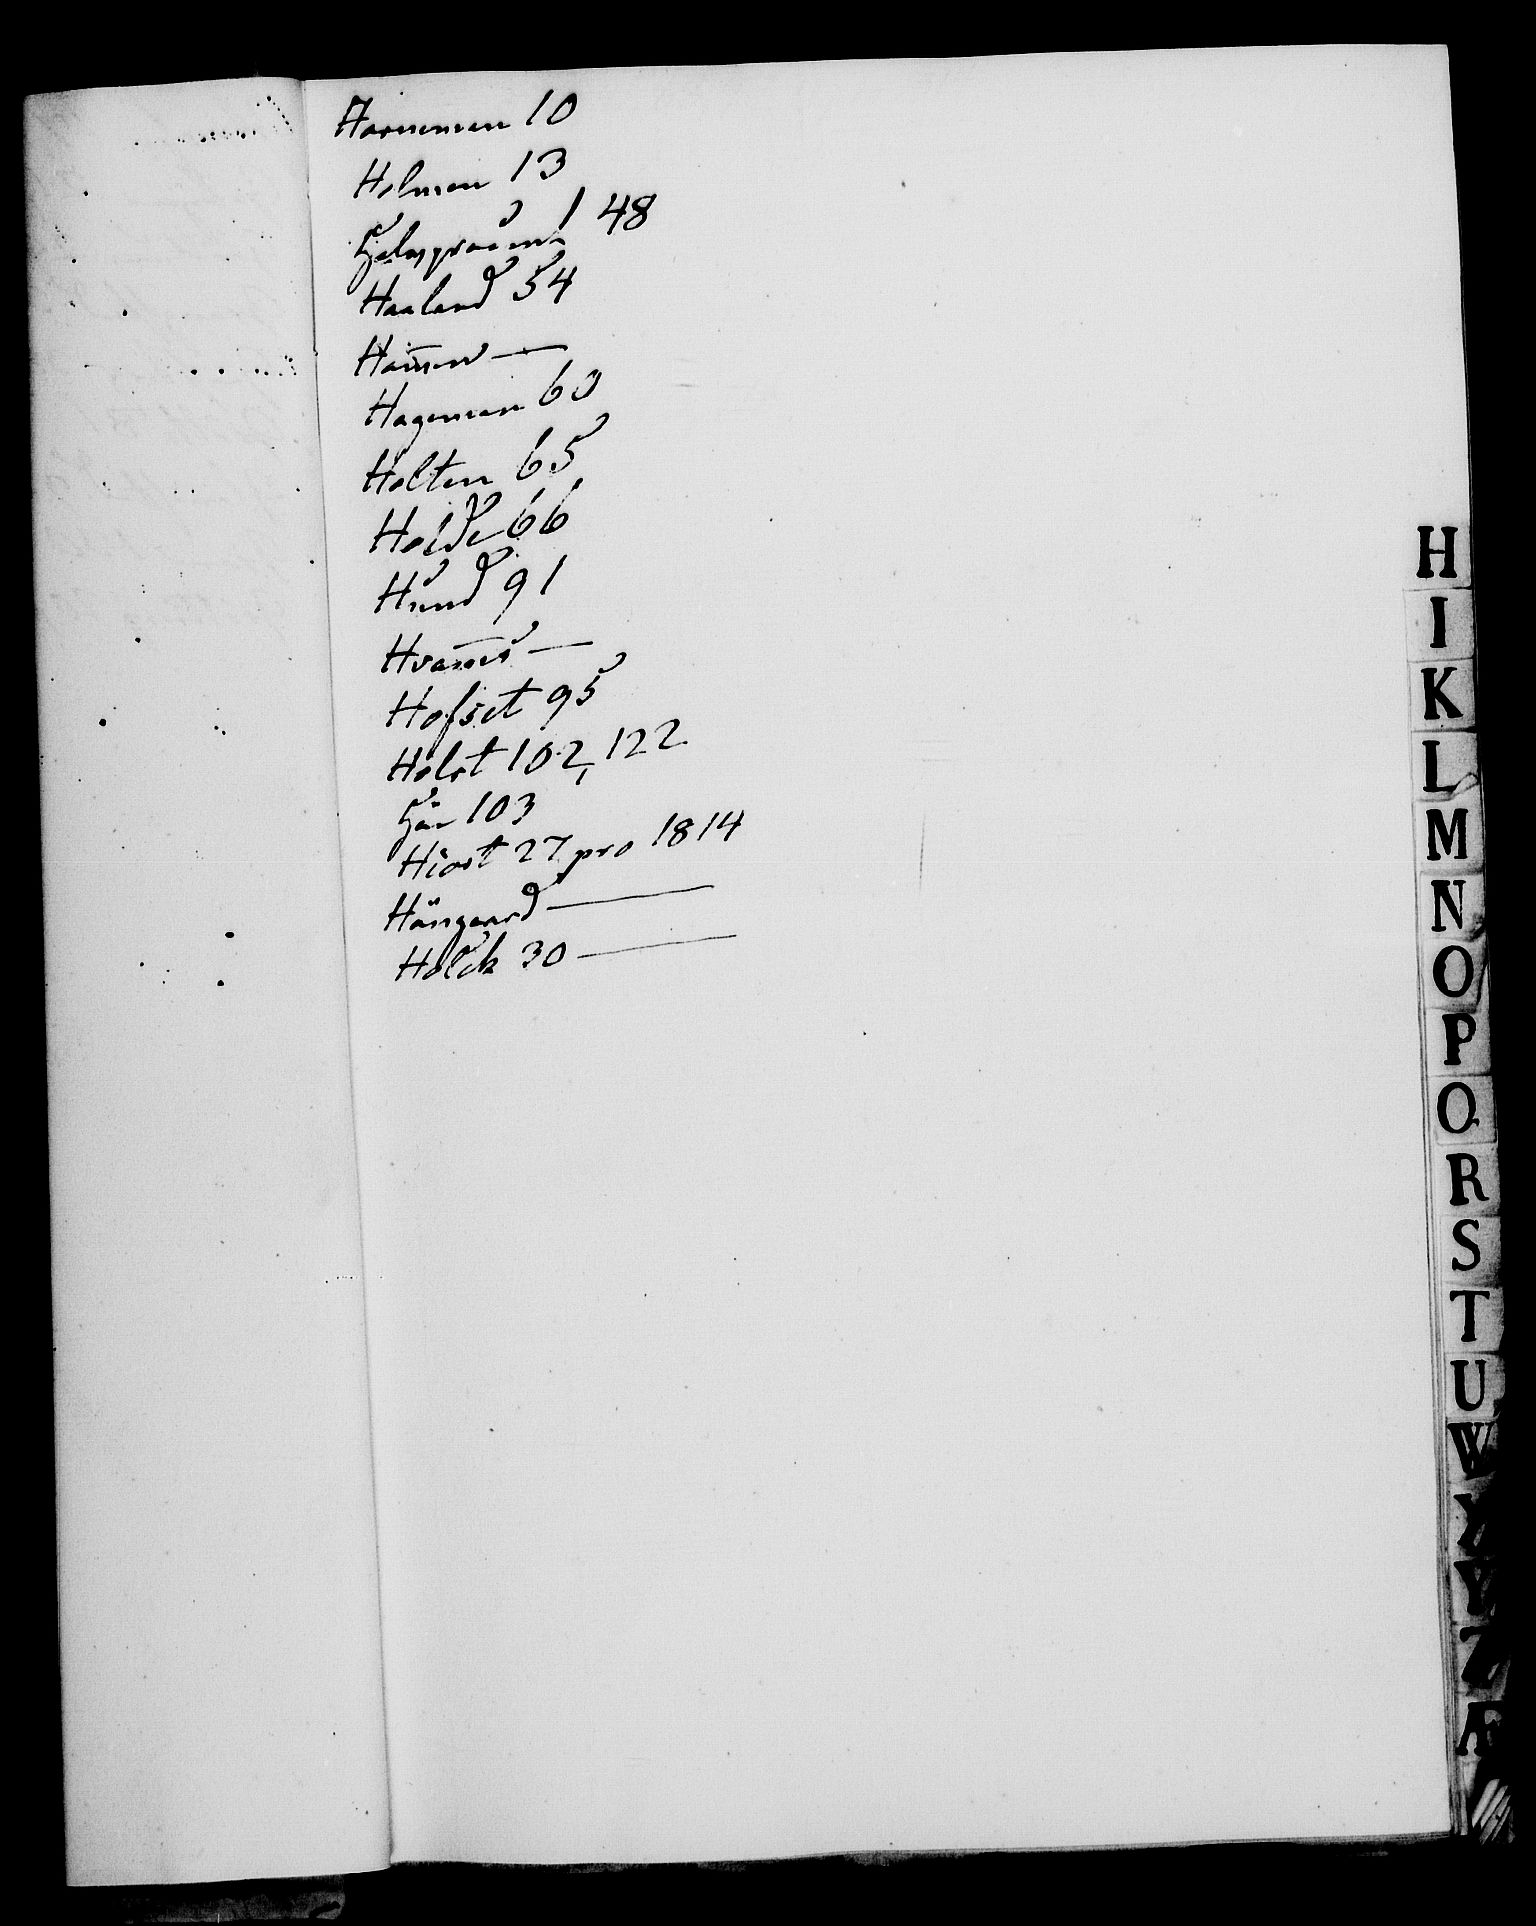 Horneman 10
Holmen 13
148
Haaland 54
Ham̄er —
Hageman 60
Holten 65
Holde 66
Hund 91
Hvam̄es —
Hofset 95
Holst 102, 122
103
Hiort 27 pro 1814
Hōngaard —
Holck 30 —
H
I
K
L
M
N
O
P
Q
R
S
T
U
W
X
Y
Z